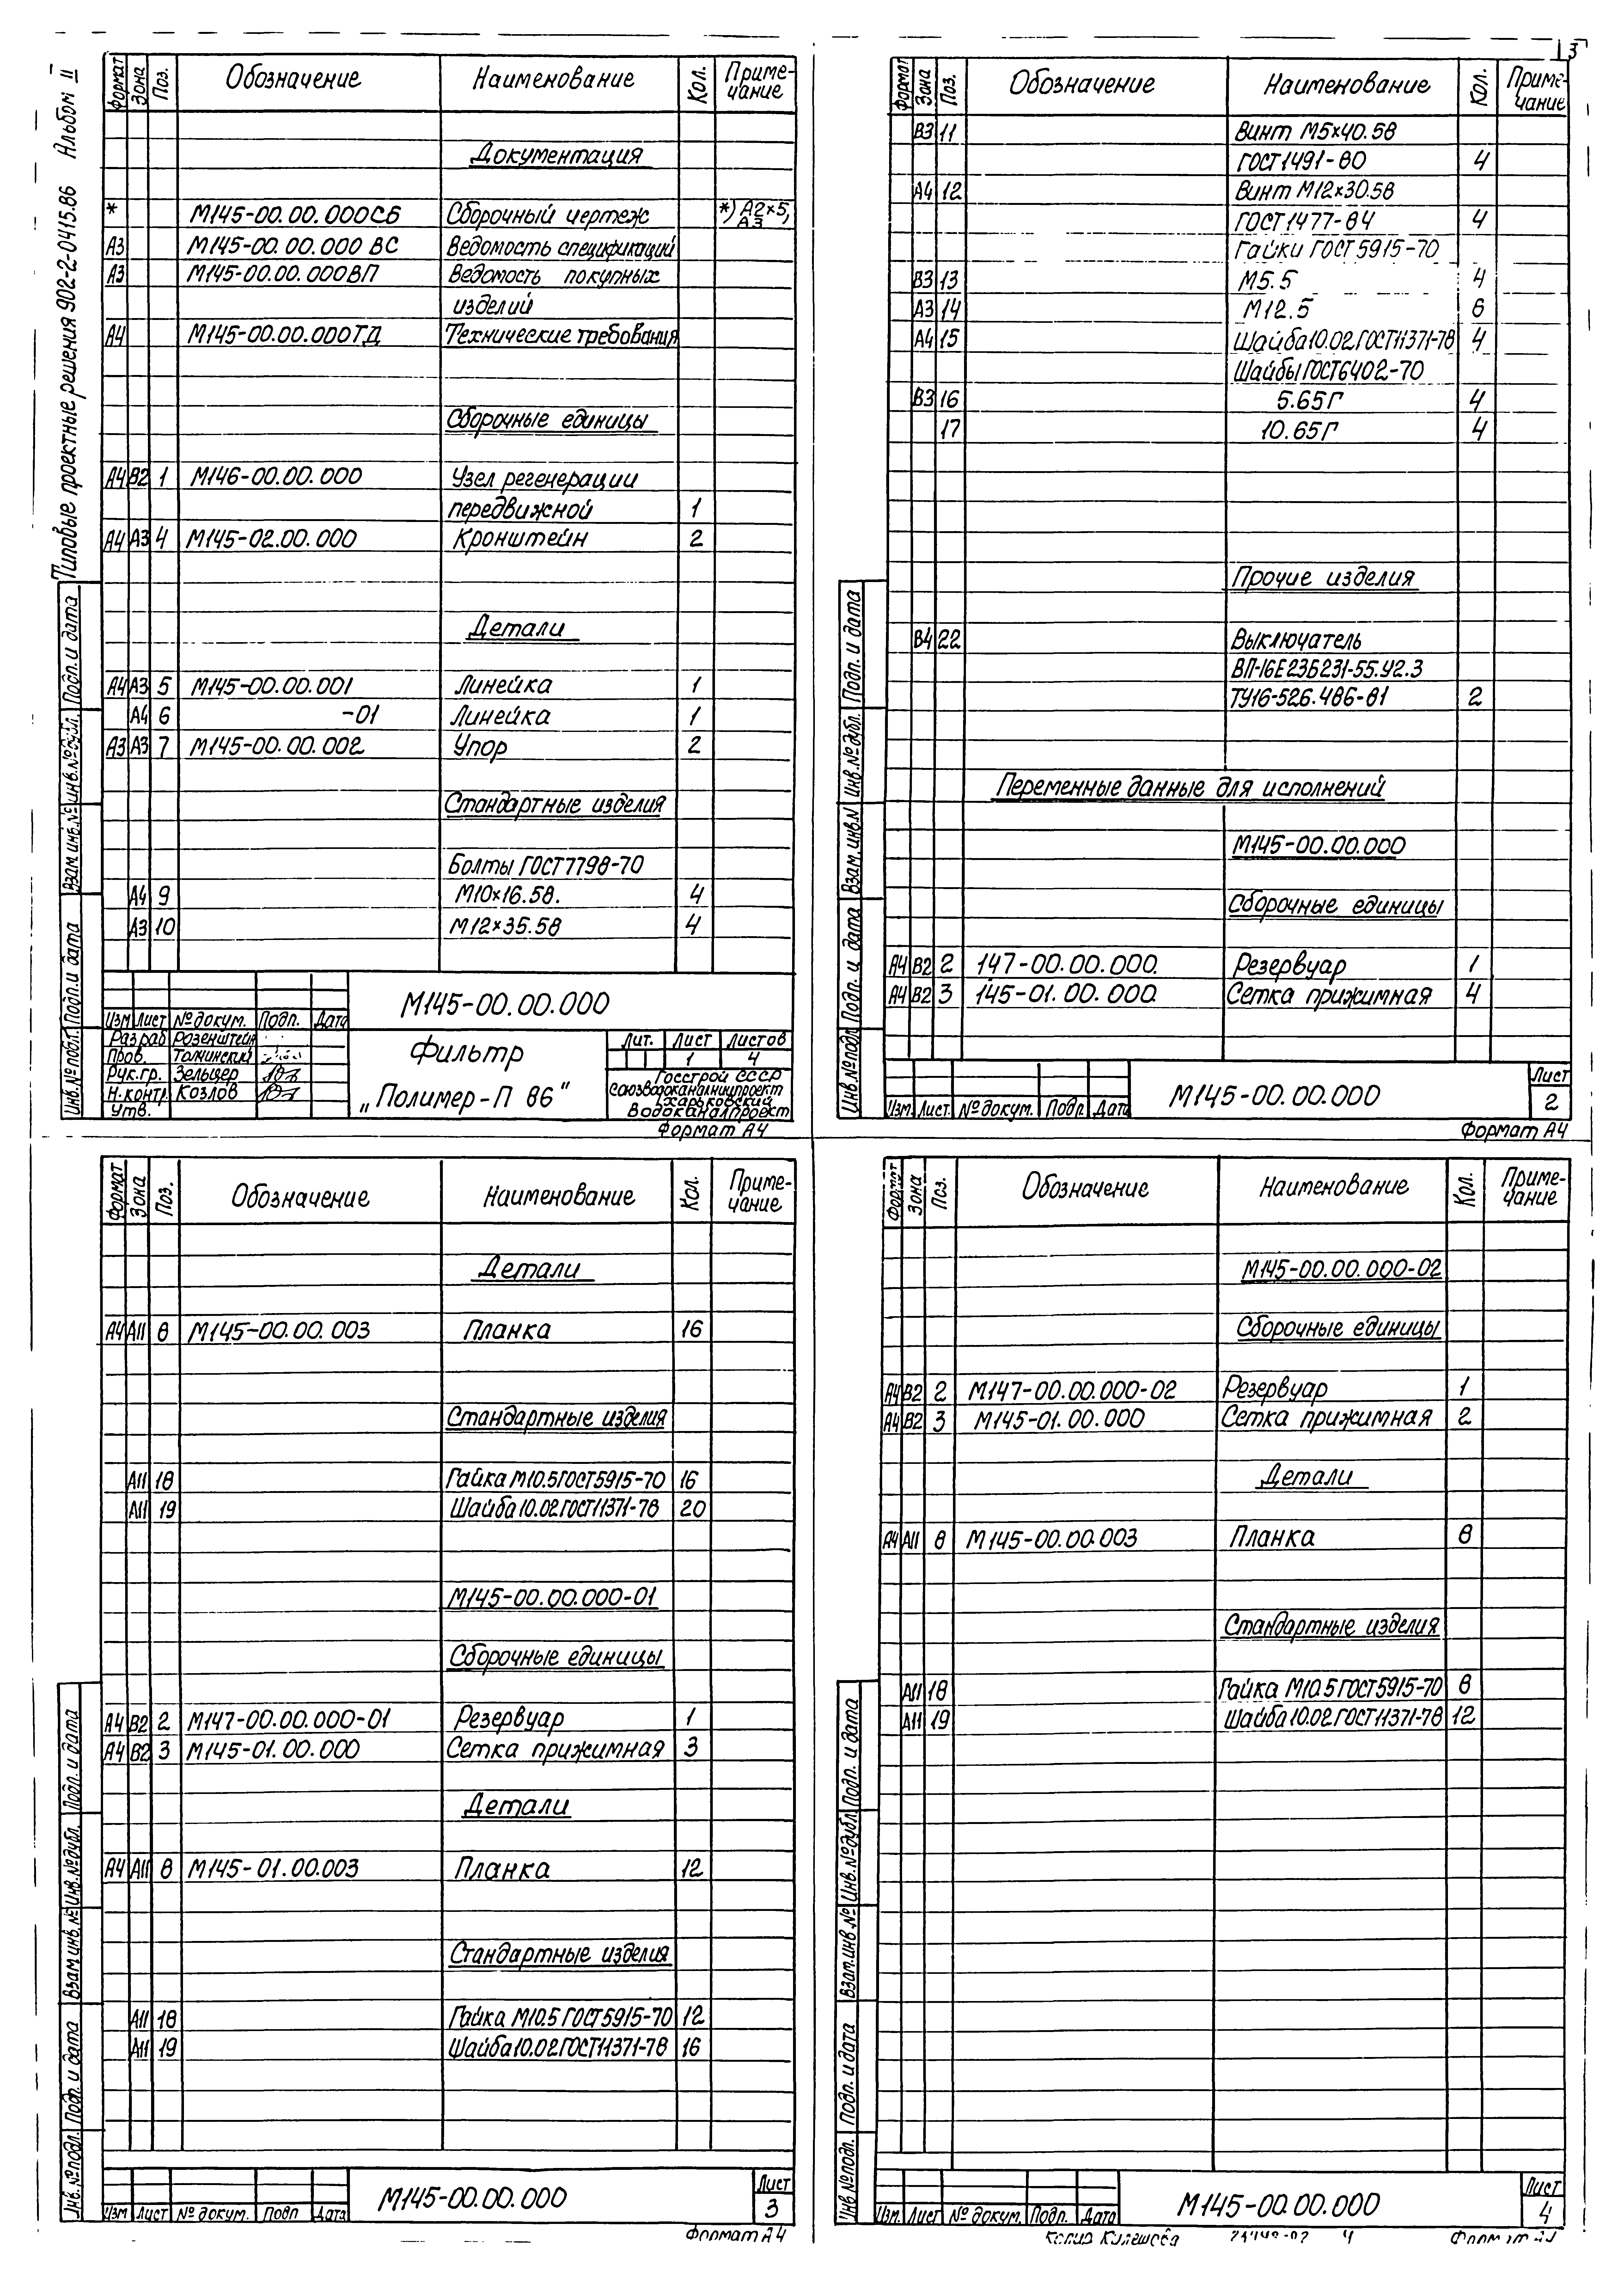 3
Типовые проектные решения 902-2-0415.86 Альбом II
Формат Зона Поз. Обозначение Наименование Кол. Приме-
чание
Документация
* М145-00.00.000СБ Сборочный чертеж *) А2×5,
А3
А3 М145-00.00.000 ВС Ведомость спецификаций
А3 М145-00.00.000ВП Ведомость покупных
изделий
А4 М145-00.00.000ТД Технические требования
Сборочные единицы
А4 В2 1 М146-00.00.000 Узел регенерации
передвижной 1
А4 А3 4 М145-02.00.000 Кронштейн 2
Детали
А4 А3 5 М145-00.00.001 Линейка 1
А4 6 -01 Линейка 1
А3 А3 7 М145-00.00.002 Упор 2
Стандартные изделия
Болты ГОСТ7798-70
А4 9 М10×16.58. 4
А3 10 М12×35.58 4
Инв.№подл. Подп.и дата Взам.инв.№ Инв.№дубл. Подп.и дата
М145-00.00.000
Изм Лист №докум. Подп. Дата
Разраб Розенштейн
Пров. Толчинский
Рук.гр. Зельцер
Н.контр. Козлов
Утв.
Фильтр
„Полимер-П 86"
Лит. Лист Листов
1 4
Госстрой СССР
Союзводоканалниипроект
Харьковский
Водоканалпроект
Формат А4
Формат Зона Поз. Обозначение Наименование Кол. Приме-
чание
В3 11 Винт М5×40.58
ГОСТ1491-80 4
А4 12 Винт М12×30.58
ГОСТ1477-84 4
Гайки ГОСТ5915-70
В3 13 М5.5 4
А3 14 М12.5 6
А4 15 Шайба10.02ГОСТ11371-78 4
Шайбы ГОСТ6402-70
В3 16 5.65Г 4
17 10.65Г 4
Прочие изделия
В4 22 Выключатель
ВП-16Е23Б231-55.У2.3
ТУ16-526.486-81 2
Переменные данные для исполнений
М145-00.00.000
Сборочные единицы
А4 В2 2 147-00.00.000. Резервуар 1
А4 В2 3 145-01.00.000 Сетка прижимная 4
Инв.№подл. Подп. и дата Взам.инв.№ Инв.№дубл. Подп. и дата
Изм. Лист. №докум. Подп. Дата М145-00.00.000 Лист
2
Формат А4
Формат Зона Поз. Обозначение Наименование Кол. Приме-
чание
Детали
А4 А11 8 М145-00.00.003 Планка 16
Стандартные изделия
А11 18 Гайка М10.5ГОСТ5915-70 16
А11 19 Шайба10.02ГОСТ11371-78 20
М145-00.00.000-01
Сборочные единицы
А4 В2 2 М147-00.00.000-01 Резервуар 1
А4 В2 3 М145-01.00.000 Сетка прижимная 3
Детали
А4 А11 8 М145-01.00.003 Планка 12
Стандартные изделия
А11 18 Гайка М10.5 ГОСТ5915-70 12
А11 19 Шайба10.02ГОСТ11371-78 16
Инв.№подл. Подп. и дата Взам.инв.№ Инв.№дубл. Подп. и дата
Изм Лист № докум. Подп Дата М145-00.00.000 Лист
3
Формат А4
Формат Зона Поз. Обозначение Наименование Кол. Приме-
чание
М145-00.00.000-02
Сборочные единицы
А4 В2 2 М147-00.00.000-02 Резервуар 1
А4 В2 3 М145-01.00.000 Сетка прижимная 2
Детали
А4 А11 8 М145-00.00.003 Планка 8
Стандартные изделия
А11 18 Гайка М10.5 ГОСТ5915-70 8
А11 19 Шайба10.02ГОСТ11371-78 12
Инв №подл. Подп. и дата Взам.инв.№ Инв.№дубл. Подп. и дата
Изм. Лист № докум. Подп. Дата М145-00.00.000 Лист
4
Копир Кулешова 4 Формат А4